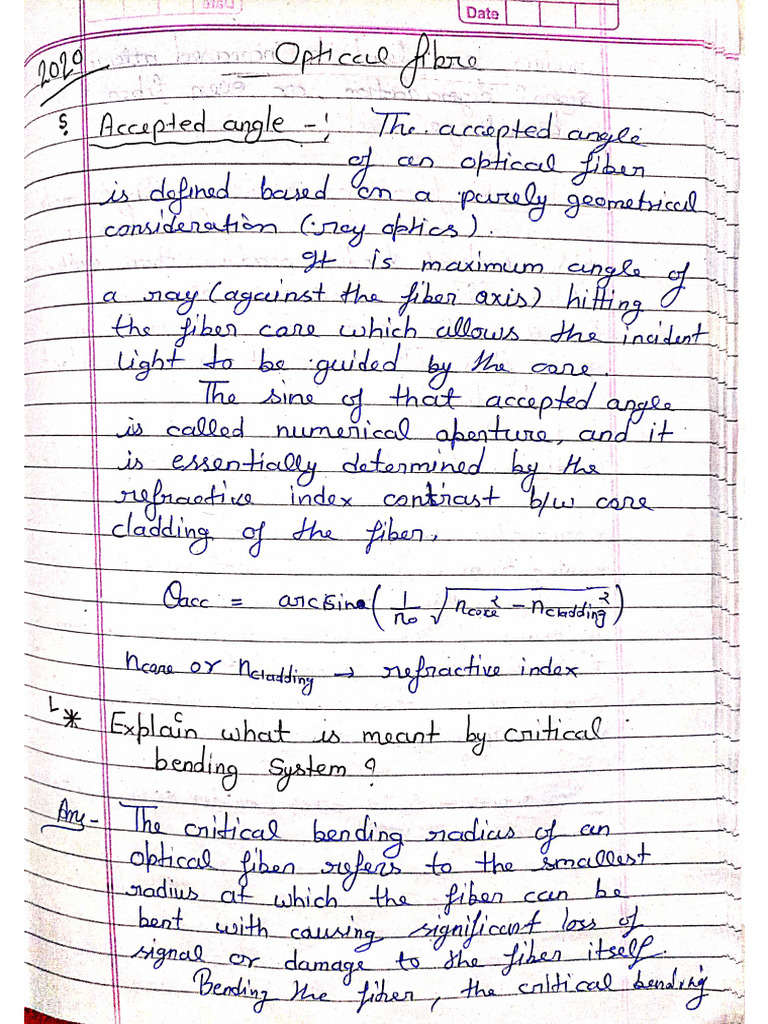 Date
2020
Optical fibre
S. Accepted angle -: The accepted angle
of an optical fiber
is defined based on a purely geometrical
consideration (ray optics).
It is maximum angle of
a ray (against the fiber axis) hitting
the fiber core which allows the incident
light to be guided by the core.
The sine of that accepted angle
is called numerical aperture, and it
is essentially determined by the
refractive index contrast b/w core
cladding of the fiber.
θacc = arcsine(1/n₀ √(n_core² - n_cladding²))
n_core or n_cladding → refractive index
L * Explain what is meant by critical
bending system?
Ans - The critical bending radius of an
optical fiber refers to the smallest
radius at which the fiber can be
bent with causing significant loss of
signal or damage to the fiber itself.
Bending the fiber, the critical bending